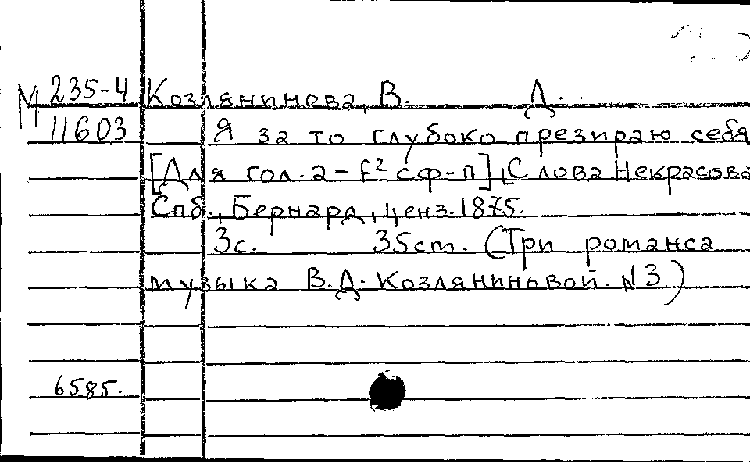 М 235-4 Козлянинова, В. Д.
11603 Я за то глубоко презираю себя
[Для гол. a-f² с ф-п], Слова Некрасова
Спб., Бернард, ценз. 1875.
3с. 35cm. (Три романса
музыка В. Д. Козляниновой. N3)
6585.